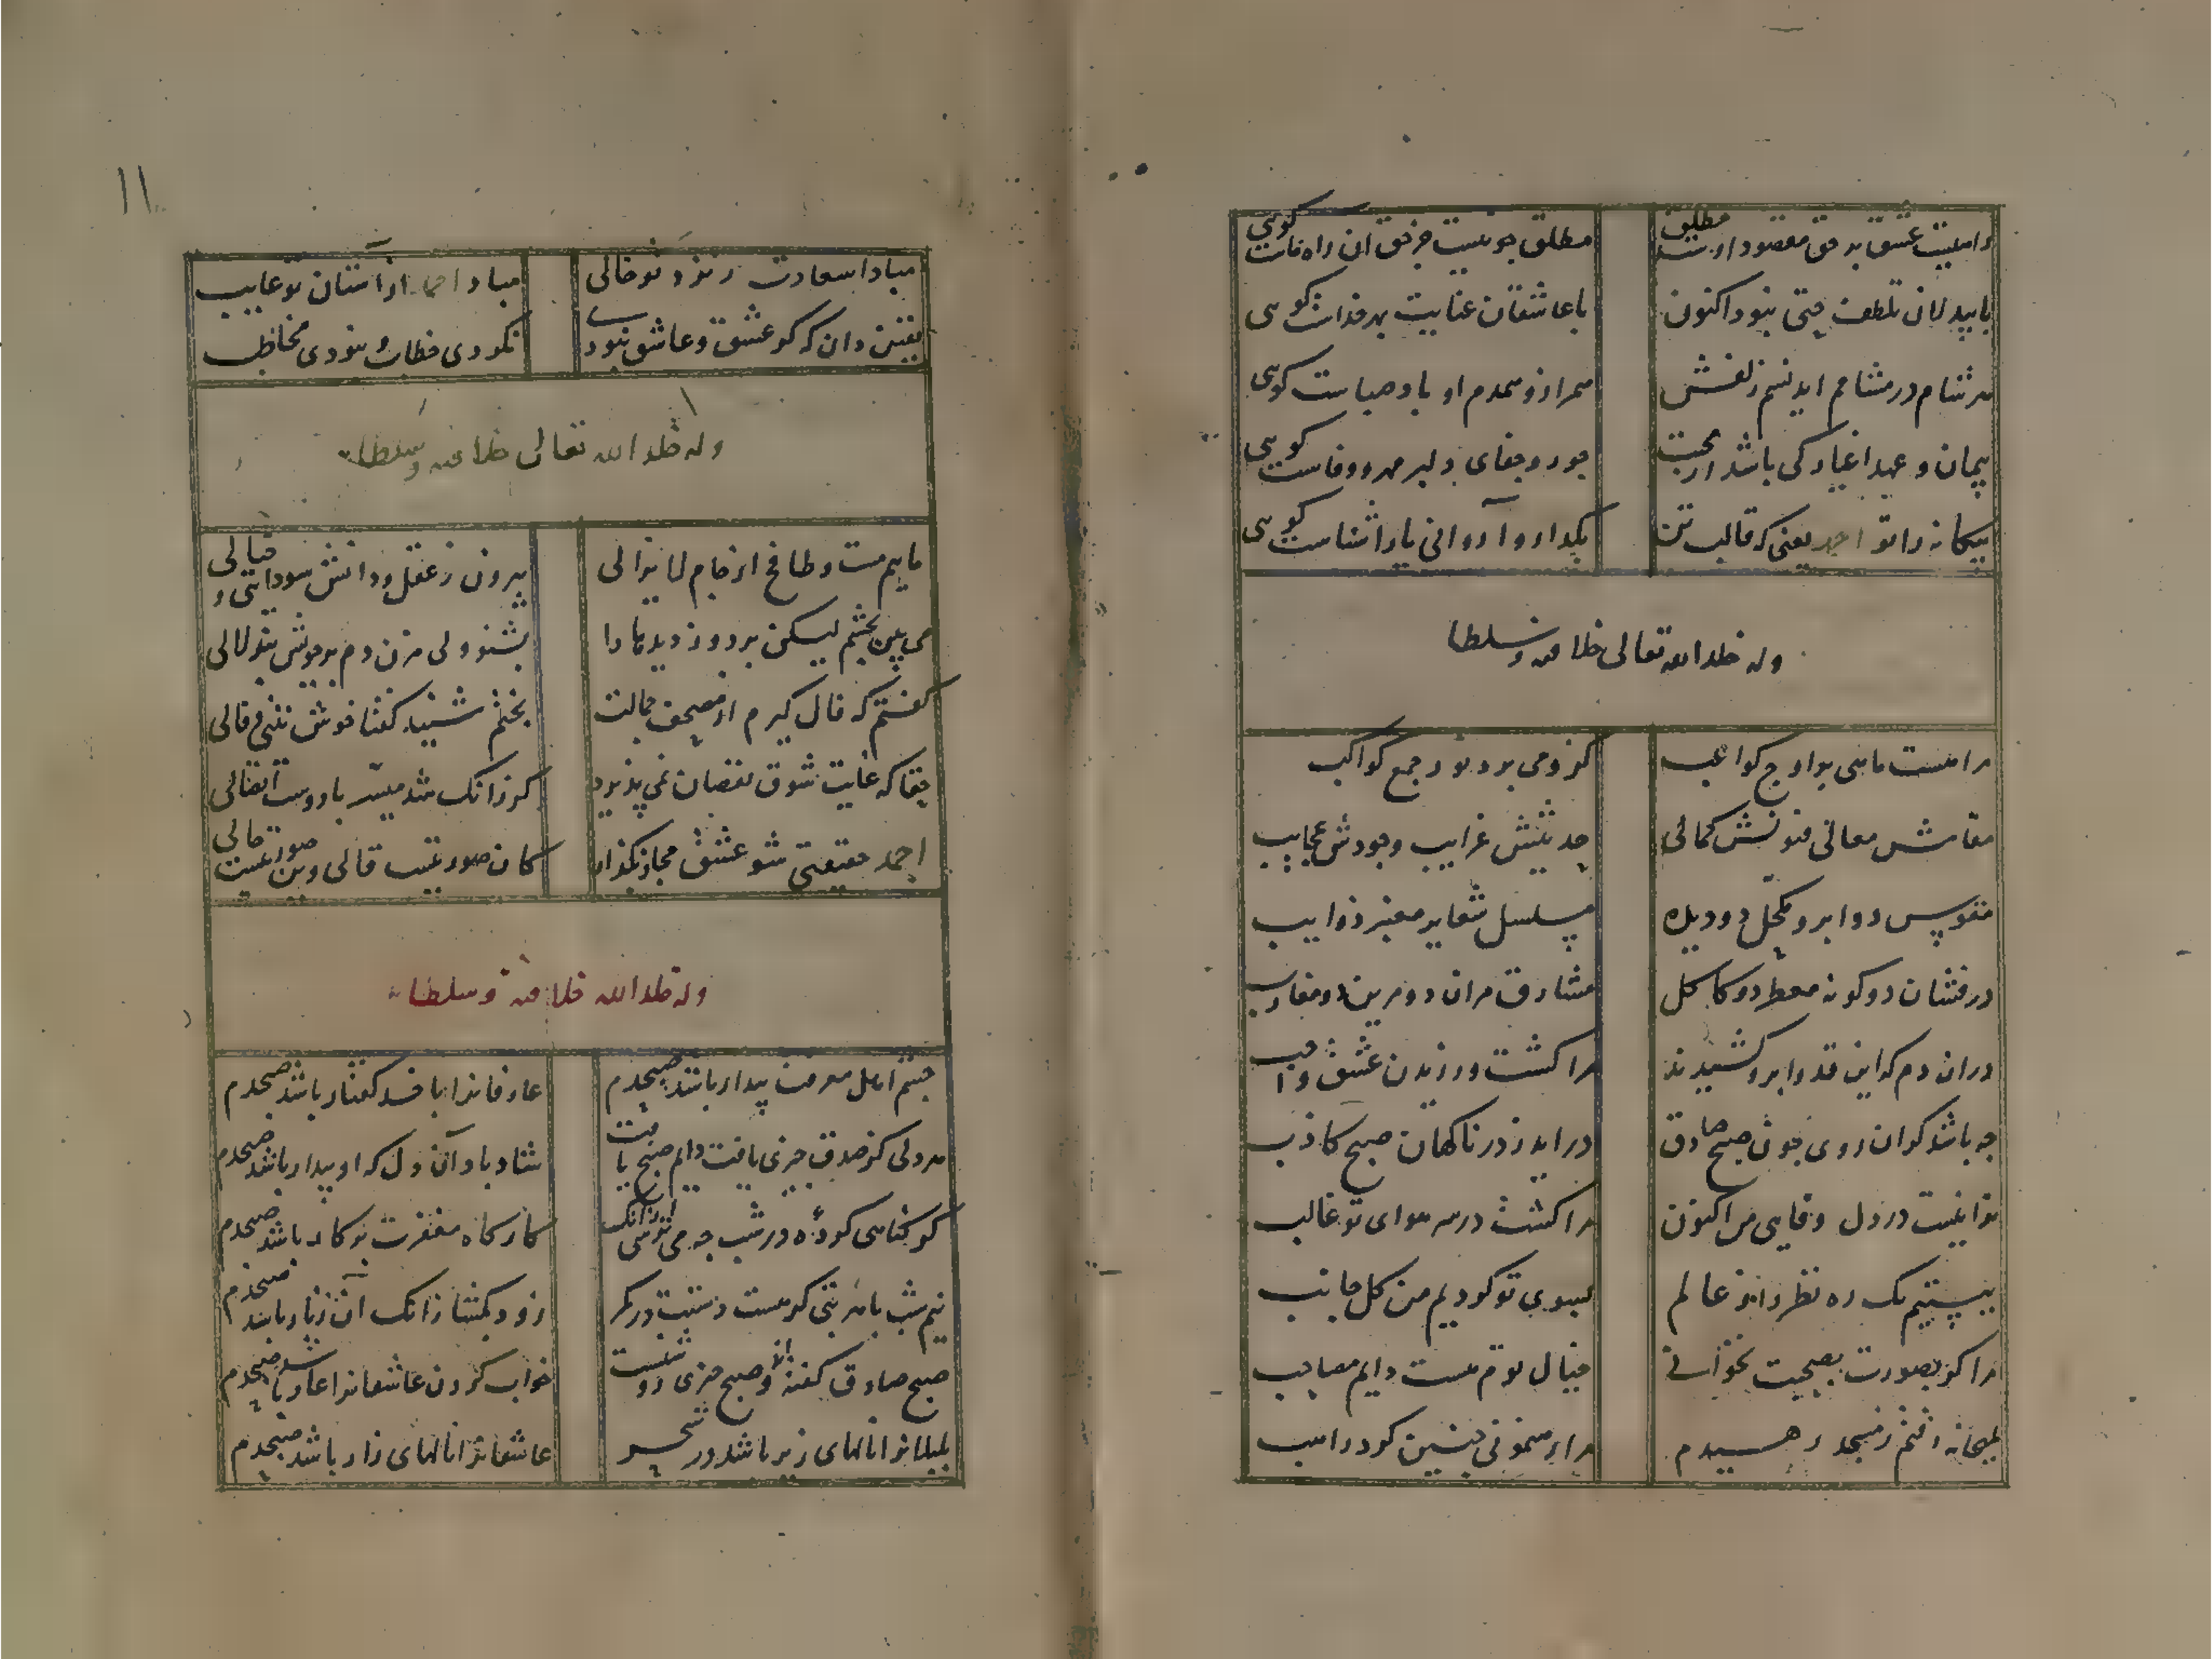 مطلق
راهیست عشق بر حق مقصود اوست
مطلق چو نیست جز حق ان راه ماست کویی
با بیدلان تلطف چتی نبود اکنون
با عاشقان عنایت بهر خداست کویی
هر شام در مشامم اید نسیم زلفش
همراز و همدم او باد صباست کویی
پیمان و عهد اغیار کی باشد از محبت
جور و جفای دلبر مهر و وفاست کویی
بیکانه را تو احمد یعنی که قالب تن
بکدار و آ روانی یار اشناست کویی
وله خلد الله تعالی خلافته و سلطانه
مرا هست ماهی بر اوج کواعب
کزو می برد نور جمع کواکب
مقامش معالی فنونش کمالی
حدیثش غرایب وجودش عجایب
مقوس دو ابرو مکحل دو دیده
مسلسل شعایر معنبر ذوایب
درفشان دو کونه معطر دو کاکل
مشارق مران دو مرین دو مغارب
دران دم که این قد و ابرو کشیدند
مرا کشت ورزیدن عشق واجب
چه باشد کر ان روی چون صبح صادق
در اید ز در ناکهان صبح کاذب
ترا نیست در دل وفایی مرا کنون
مرا کشت در سر هوای تو غالب
ببستیم یک ره نظر را ز عالم
بسوی تو کردیم من کل جانب
مرا کر بصورت بصحبت نخوانی
خیال توم هست دایم مصاحب
بمیخانه رفتم ز مسجد رهیدم
مرا رهنمونی چنین کرد راهب
۱۱
مبادا سعادت ز نزد تو خالی
مباد احمد از آستان تو غایب
یقین دان که کر عشق و عاشق نبودی
نکردی خطاب و نبودی مخاطب
وله خلد الله تعالی خلافته و سلطانه
ماییم مست و طافح از جام لایزالی
بیرون ز عقل و دانش سودایی و خیالی
می بین بچشم لیکن بر دوز دیدها را
بشنو ولی مزن دم بر موش بند لالی
کفتم که فال کیرم از مصحف جمالت
بختم شنید کفتا خوش نیتی و فالی
حقا که غایت شوق نقصان نمی پذیرد
کر زانک شد میسر با دوست اتصالی
احمد حقیقتی شو عشق مجاز بکذار
کان صورتیست قالی وین صورتیست حالی
وله خلد الله خلافته و سلطانه
چشم اهل معرفت بیدار باشد صبحدم
عارفانرا با خدا کفتار باشد صبحدم
هر دلی کز صدق چیزی یافت دایم صبح یافت
شاد باد آن دل که او بیدار باشد صبحدم
کر کناهی کرده در شب چه می ترسی از انک
کارکاه مغفرت بر کار باشد صبحدم
نیم شب با هر بتی کر هست دستت در کمر
زود بکشا زانک ان زنار باشد صبحدم
صبح صادق کفته اند و صبح خیزی دوست
خواب کردن عاشقانرا عار باشد صبحدم
بلبلانرا نالهای زیر باشد در سحر
عاشقانرا نالهای زار باشد صبحدم